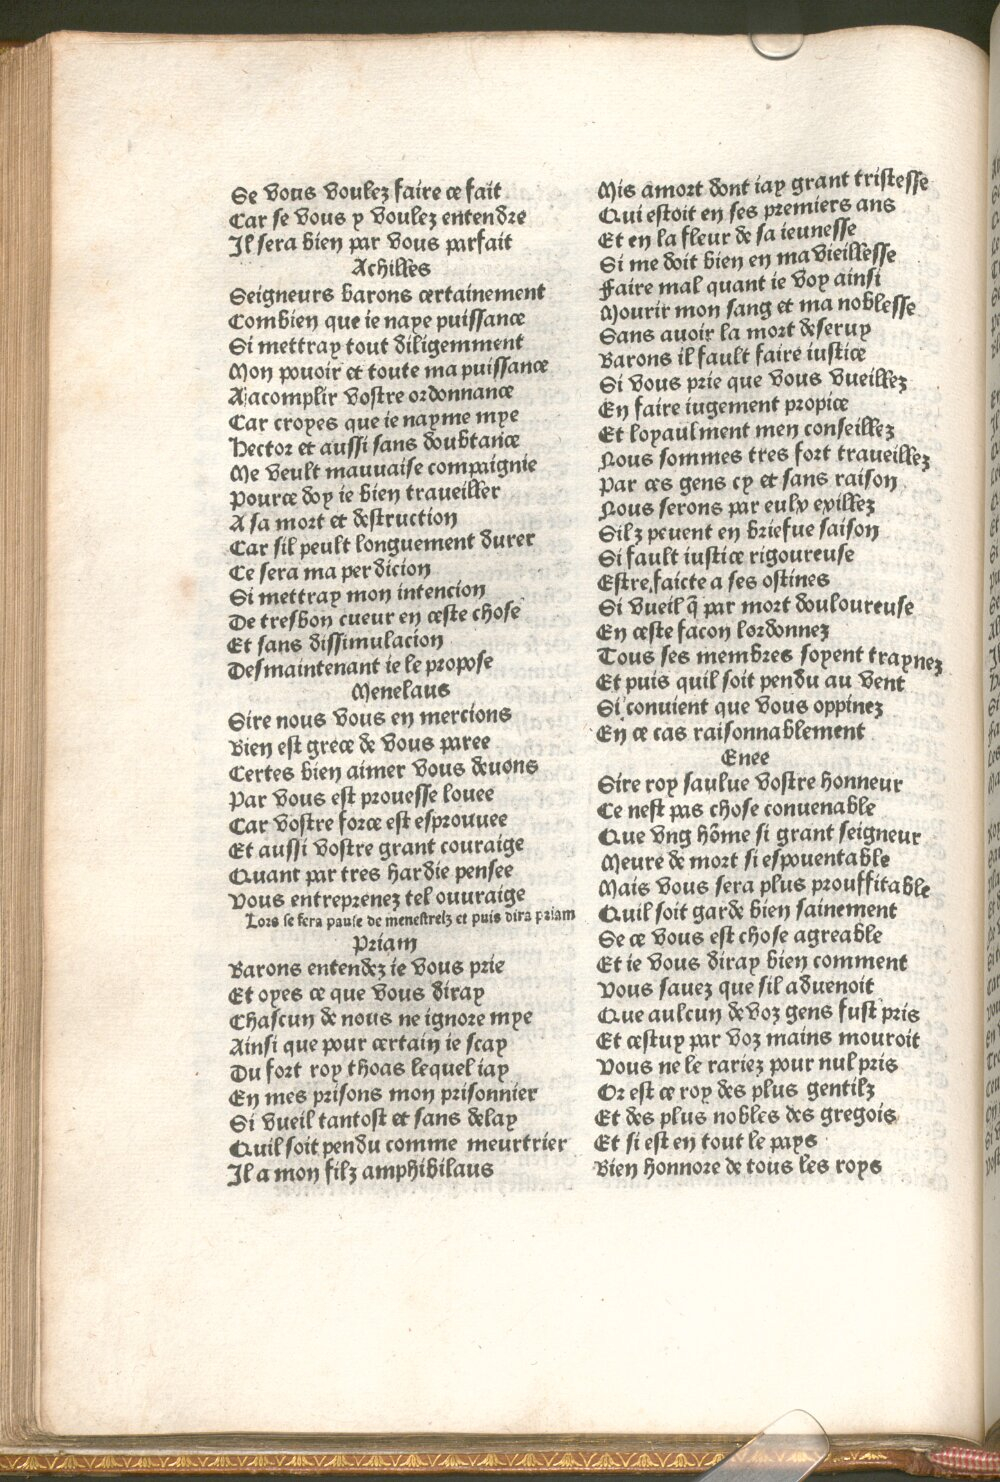 Se vous voulez faire ce fait
Car se vous y voulez entendre
Il sera bien par vous parfait
Achilles
Seigneurs barons certainement
Combien que ie naye puissance
Si mettray tout diligemment
Mon pouoir et toute ma puissance
A acomplir vostre ordonnance
Car croyes que ie nayme mye
Hector et aussi sans doubtance
Me veult mauuaise compaignie
Pource doy ie bien traueiller
A sa mort et destruction
Car sil peult longuement durer
Ce sera ma perdicion
Si mettray mon intencion
De tresbon cueur en ceste chose
Et sans dissimulacion
Desmaintenant ie le propose
Menelaus
Sire nous vous en mercions
Bien est grece de vous paree
Certes bien aimer vous deuons
Par vous est prouesse louee
Car vostre force est esprouuee
Et aussi vostre grant couraige
Quant par tres hardie pensee
Vous entreprenez tel ouuraige
Lors se fera pause de menestrelz et puis dira priam
Priam
Barons entendez ie vous prie
Et oyes ce que vous diray
Chascun de nous ne ignore mye
Ainsi que pour certain ie scay
Du fort roy thoas lequel iay
En mes prisons mon prisonnier
Si vueil tantost et sans delay
Quil soit pendu comme meurtrier
Il a mon filz amphibilaus
Mis amort dont iay grant tristesse
Qui estoit en ses premiers ans
Et en la fleur de sa ieunesse
Si me doit bien en ma vieillesse
Faire mal quant ie voy ainsi
Mourir mon sang et ma noblesse
Sans auoir la mort deseruy
Barons il fault faire iustice
Si vous prie que vous vueillez
En faire iugement propice
Et loyaulment men conseillez
Nous sommes tres fort traueillez
Par ces gens cy et sans raison
Nous serons par eulx exillez
Silz peuent en briefue saison
Si fault iustice rigoureuse
Estre faicte a ses ostines
Si vueil q̃ par mort douloureuse
En ceste facon lordonnez
Tous ses membres soyent traynez
Et puis quil soit pendu au vent
Si conuient que vous oppinez
En ce cas raisonnablement
Enee
Sire roy saulue vostre honneur
Ce nest pas chose conuenable
Que vng hõme si grant seigneur
Meure de mort si espouentable
Mais vous sera plus prouffitable
Quil soit garde bien sainement
Se ce vous est chose agreable
Et ie vous diray bien comment
Vous sauez que sil aduenoit
Que aulcun de voz gens fust pris
Et cestuy par voz mains mouroit
Vous ne le rariez pour nul pris
Or est ce roy des plus gentilz
Et des plus nobles des gregois
Et si est en tout le pays
Bien honnore de tous les roys